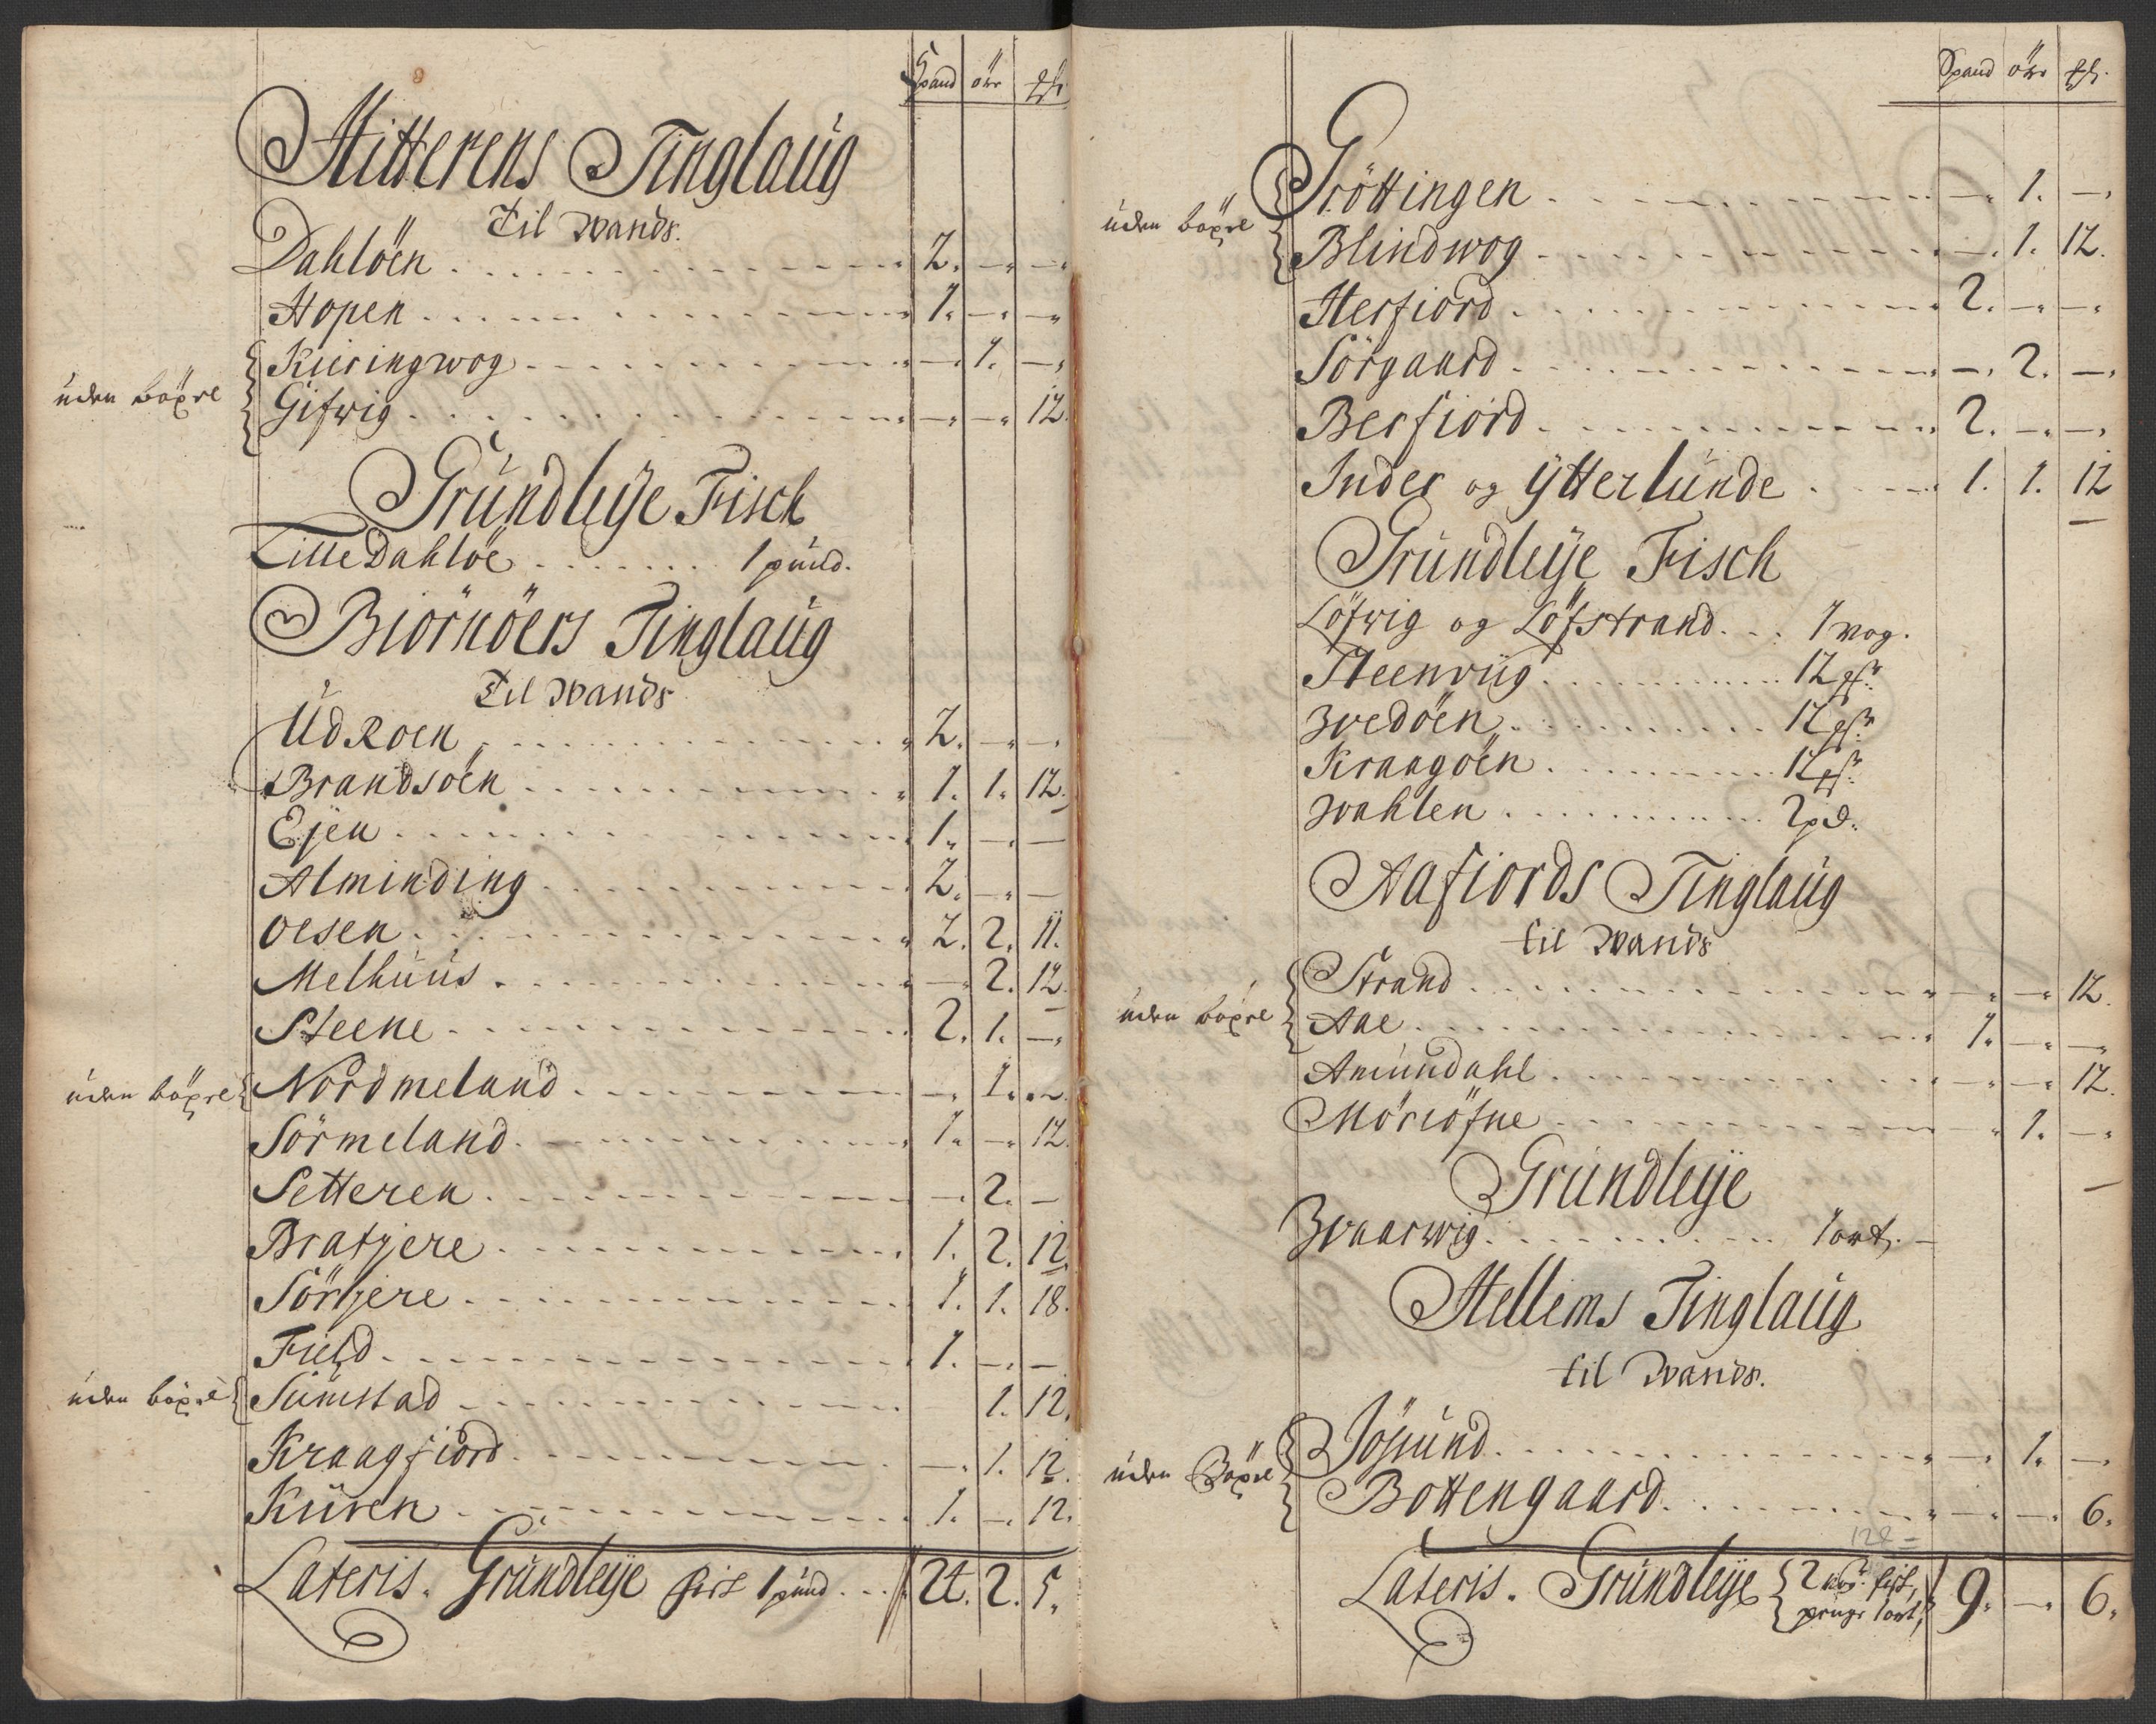 Spand öhr
Hitterens Tinglaug
Til Wands.
Dahlöen 2. - -
Hopen 1. - -
Kieringwog - 1. -
uden böxel
Gifwig - - 12.
Grundleÿe Fisch
Lille Dahlöe 1 pund.
Biornöers Tinglaug
Til Wands
UdRoen 2. - -
Brandsöen 1. 1. 12.
Eÿen 1. - -
Alminding 2. - -
Oesen 2. 2. 11.
Melhuus - 2. 12.
Steene 2. 1. -
uden böxel Nordmeland - 1. -
Sörmeland 1. - 12.
Setteren - 2. -
Bratjere 1. 2. 12.
Sörjere 1. 1. 18.
Field 1. - -
uden böxel Sumstad 1. 12.
Kraagfiord - 1. 12.
Kuren 1. - 12.
Lateris. Grundleÿe fisk 1 pund 21. 2. 5.
Spand öhr
Gröttingen - 1. -
uden böxel
Blindwog - 1. 12.
Hesfiord 2. - -
Sörgaard - 2. -
Besfiord 2. - -
Inder og Ÿtterlunde 1. 1. 12
Grundleÿe Fisch
Löfwig og Löfstrand 1 wog.
Steenwiig 12
Wedöen 12
Kraagöen 12
Wahlen 2 pd.
Aafiords Tinglaug
til Wands
Strand - - 12.
uden böxel Aae 1. - -
Amundahl - - 12.
Möriöfne - 1. -
Grundleÿe
Waarwig 1 ort. -
Hellems Tinglaug
til Wands.
Jösund - 1. -
uden Böxel
Bottengaard - - 6.
Lateris. Grundleÿe 2 wog fisk, 9. - 6.
penge 1 ort,